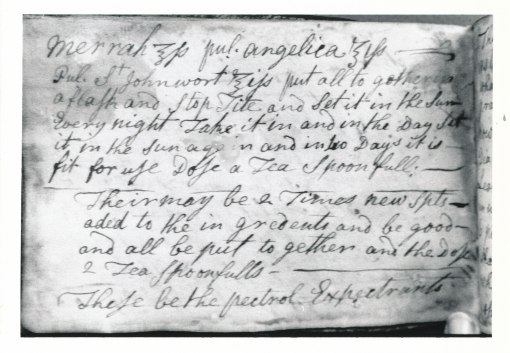 merrah ʒss pul. angelica ʒiss
Pul. St Johnwort ʒiss put all to gether in
a flash and Stop Tite and Set it in the Sun
Every night Take it in and in the Day Set
it in the Sun agg in and in 10 Days it is
fit for use Dose a Tea Spoonfull;
Their may be 2 Times new spts
aded to the in gredents and be good
and all be put to gether and the dose
2 Tea Spoonfulls
These be the pectrol Expectrants